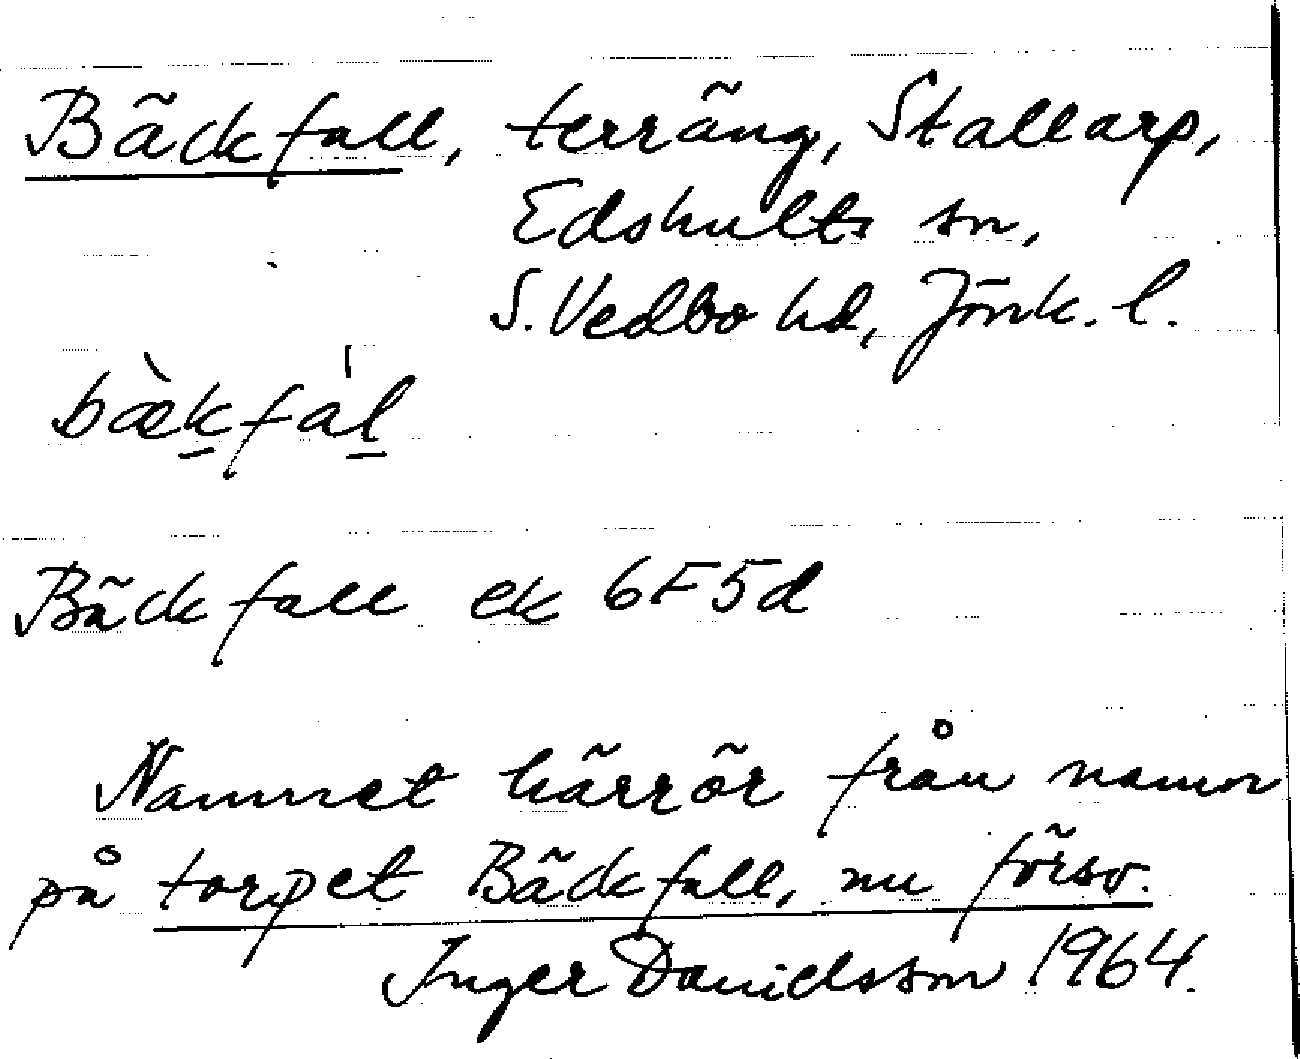 Bäckfall, terräng, Stallarp,
Edshults sn,
S. Vedbo hd, Jönk. l.
bæ̀kfál
Bäckfall ek 6F5d
Namnet härrör från namn
på torpet Bäckfall, nu försv.
Inger Danielsson 1964.